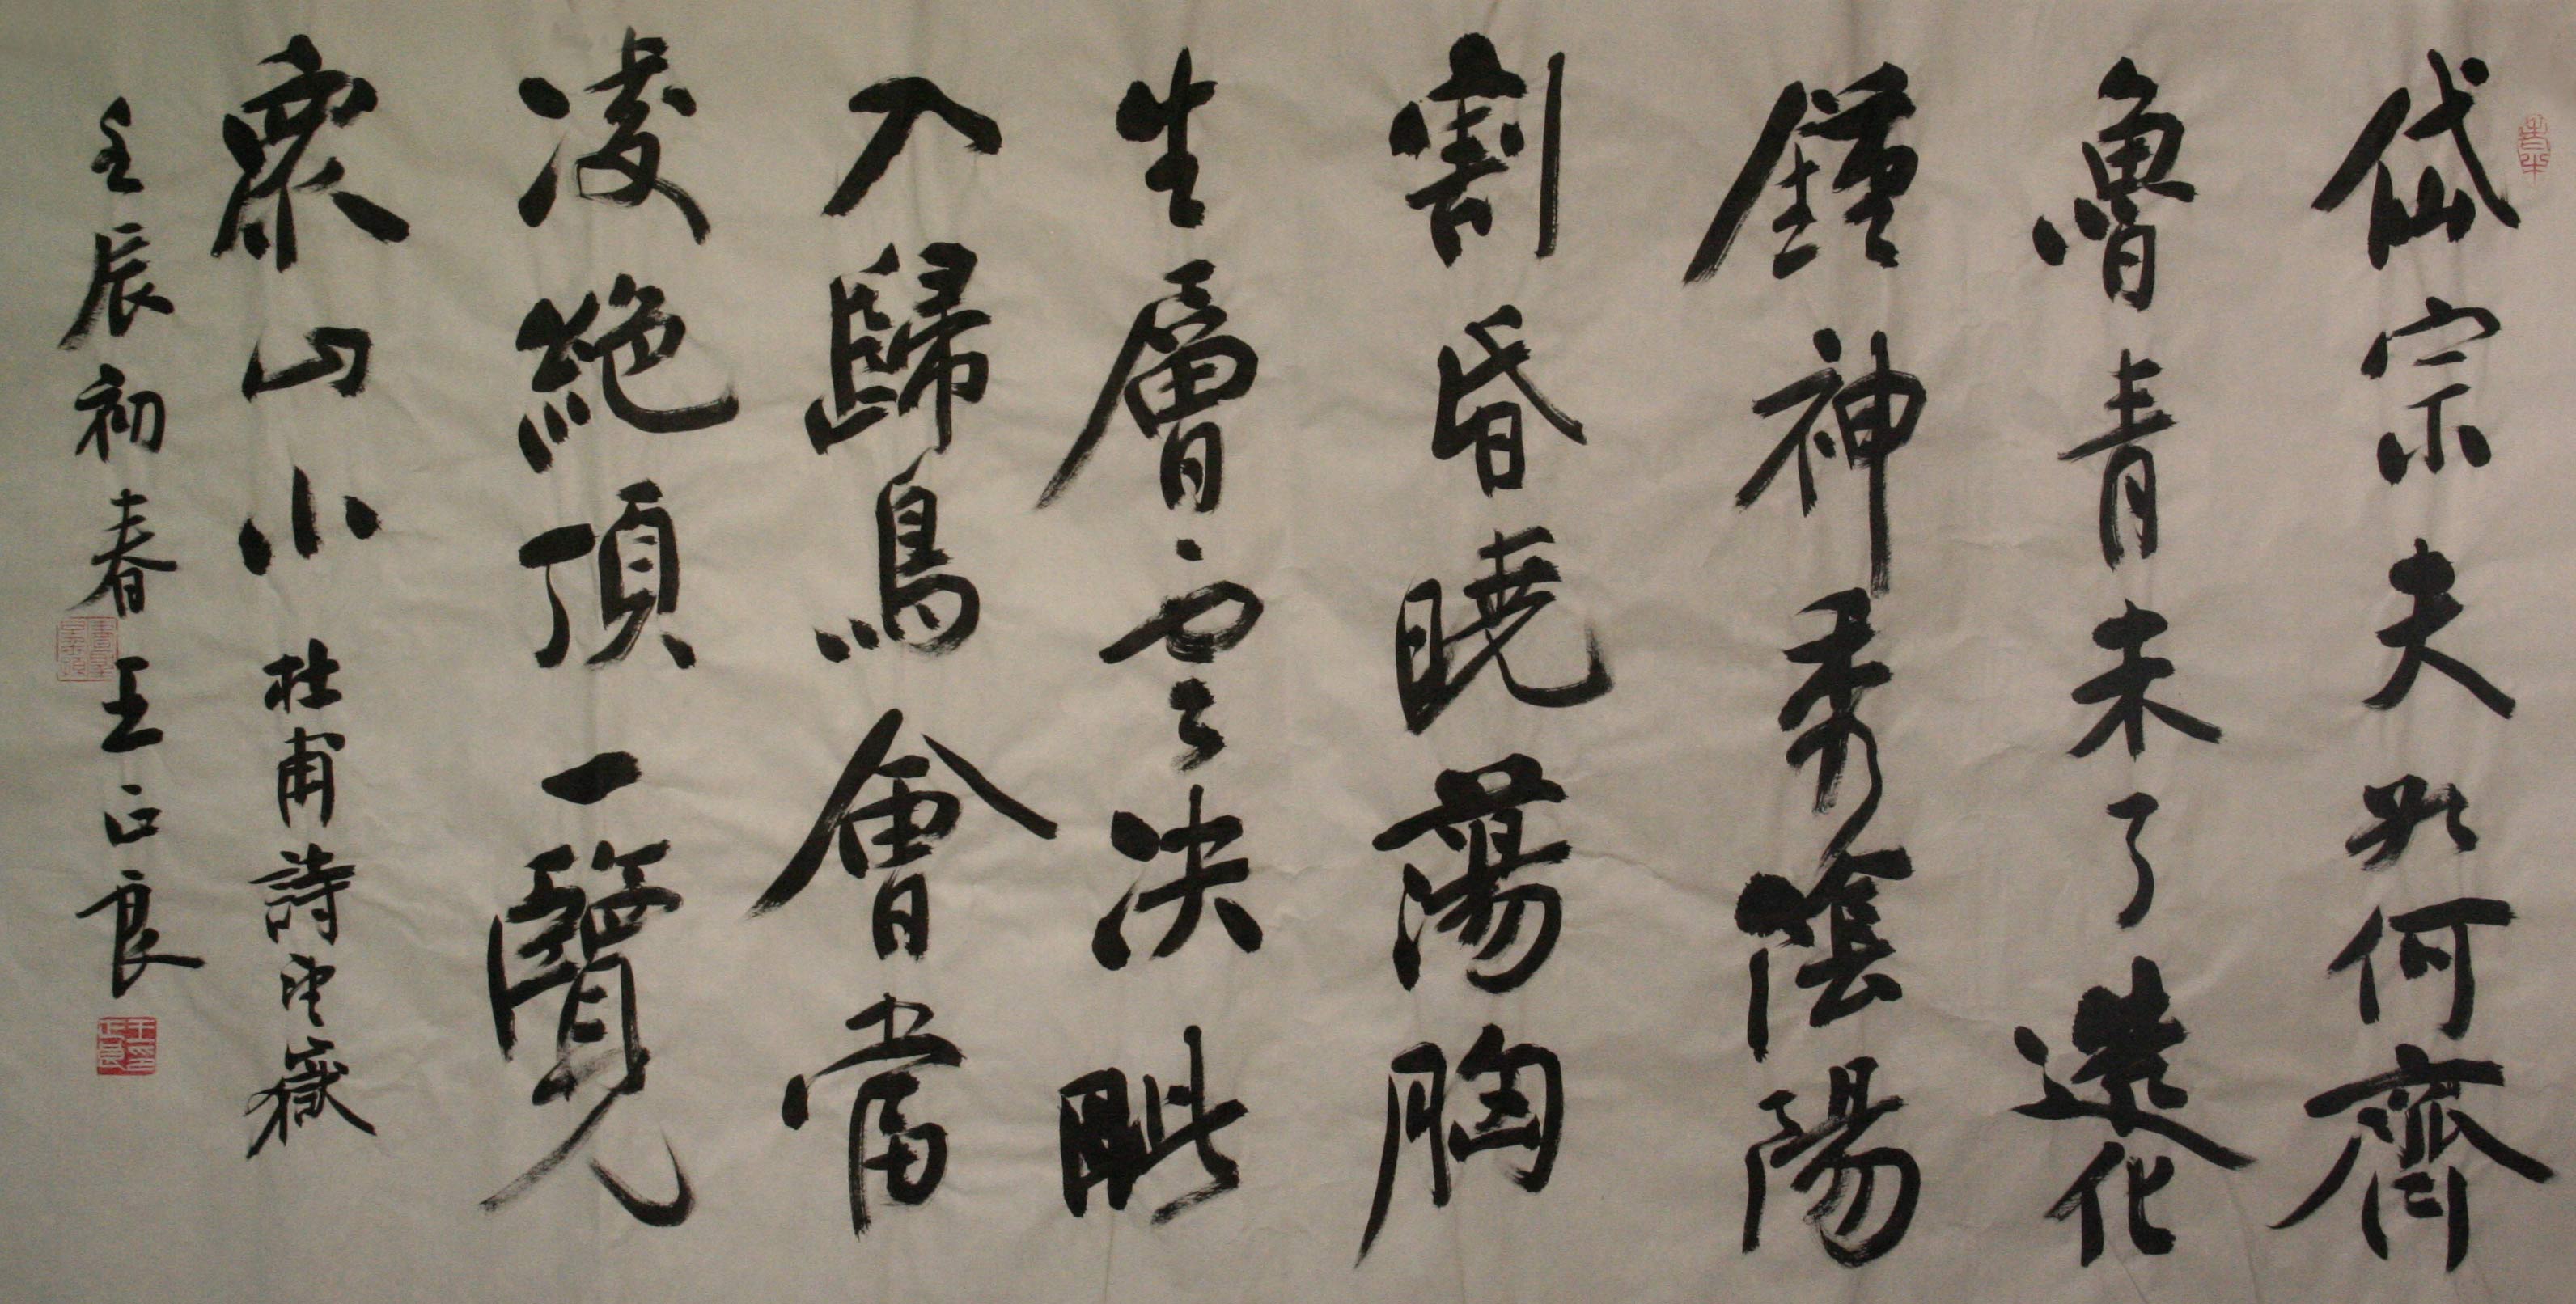 岱宗夫如何齊
魯青未了造化
鍾神秀陰陽
割昏曉蕩胸
生層雲決眦
入歸鳥會當
凌絶頂一覽
衆山小 杜甫詩望嶽
壬辰初春王正良
王印正良